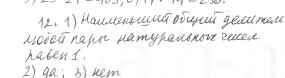 12. 1) Наименьший общий делитель
любой пары натуральных чисел
равен 1.
2) да; 3) нет